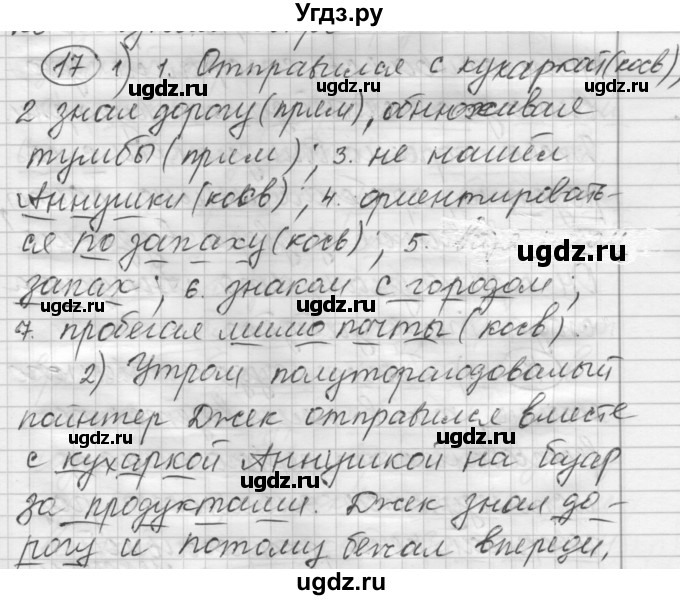 Угдз.ру
17 1) 1. Отправился с кухаркой (косв),
ugdz.ru ugdz.ru
2 знал дорогу (прям), обнюхивая
тумбы (прям); 3. не нашёл
ugdz.ru
Аннушки (косв); 4. ориентировать-
ся по запаху (косв); 5.
ugdz.ru ugdz.ru
запах; 6. знаком с городом;
ugdz.ru
7. пробегая мимо почты (косв).
2) Утром полуторагодовалый
пойнтер Джек отправился вместе
ugdz.ru ugdz.ru
с кухаркой Аннушкой на базар
ugdz.ru
за продуктами. Джек знал до-
рогу и потому бежал впереди,
ugdz.ru ugdz.ru
ugdz.ru